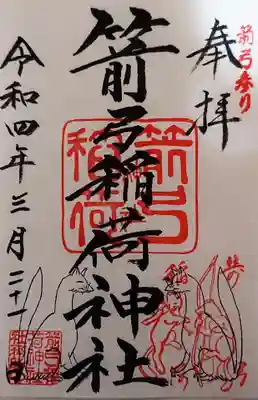 箭弓参り
奉拝
箭弓稲荷神社
箭弓
稲荷
令和四年三月二十一日